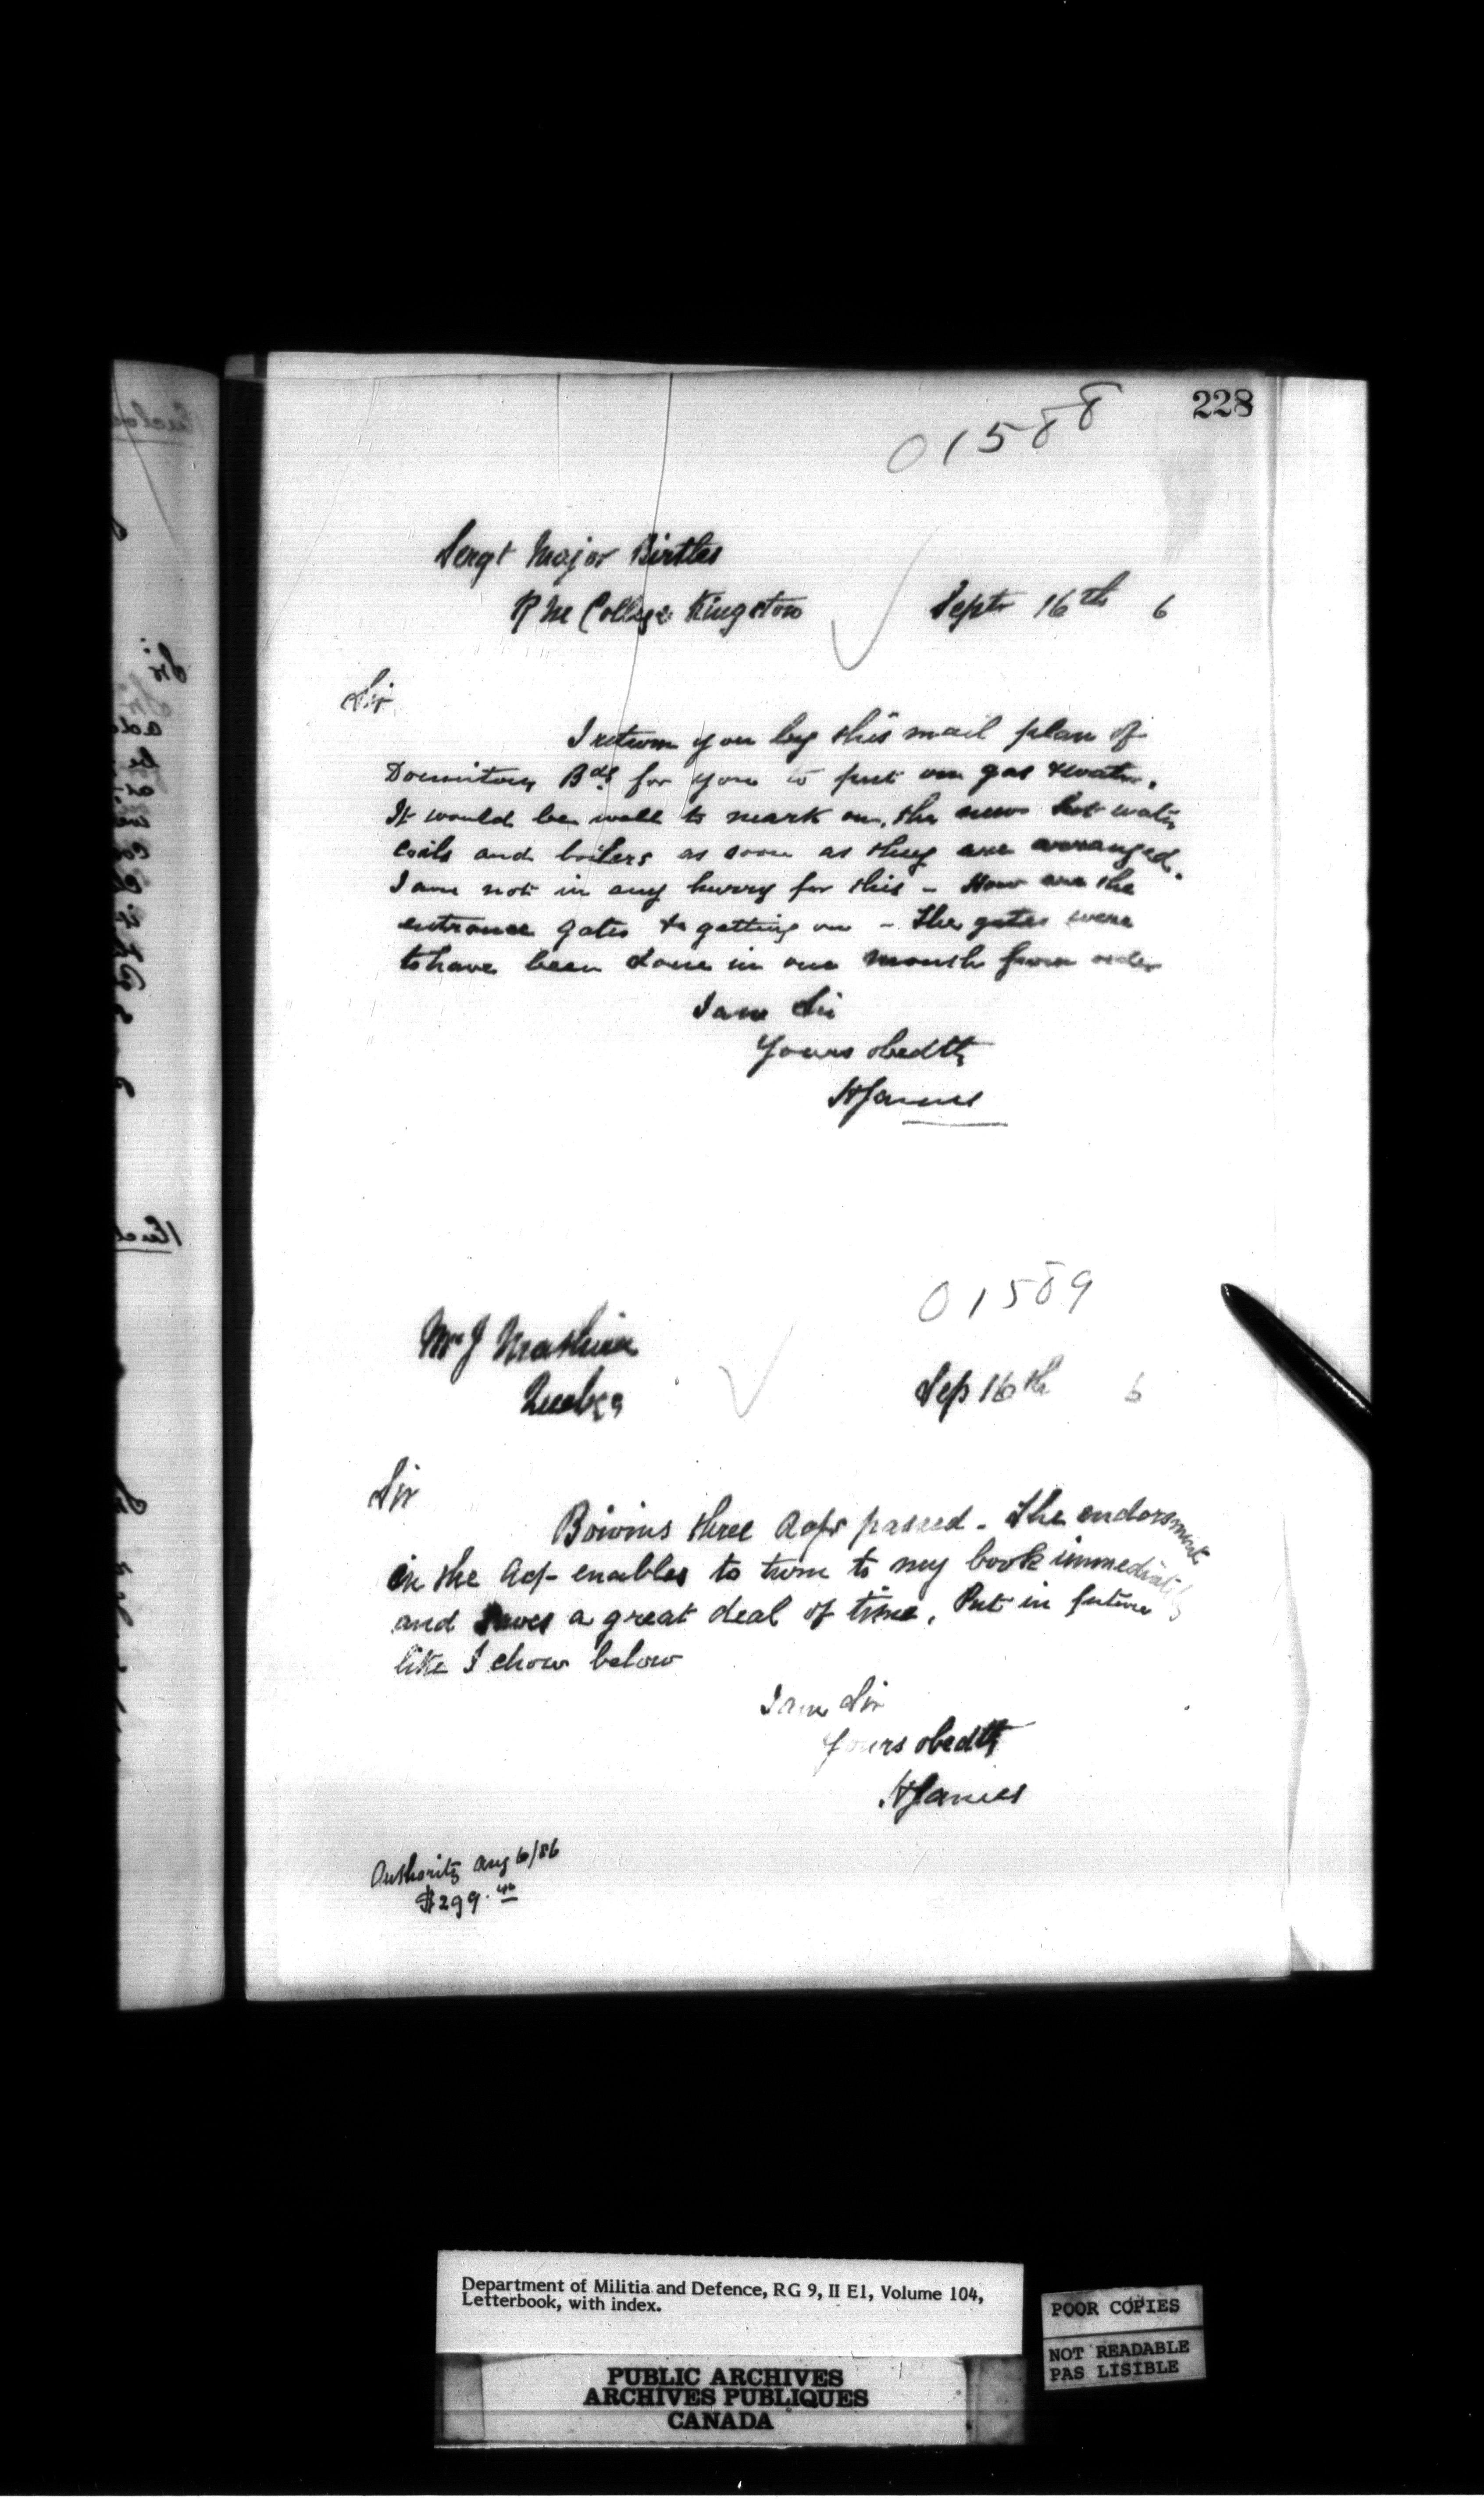 228
01588
Sergt Major Birtles
R M College Kingston
Septr 16th 6
Sir
I return you by this mail plan of
Dormitory Bdg for you to put on gas & water.
It would be well to mark on, the new hot water
coils and boilers as soon as they are arranged.
I am not in any hurry for this - How are the
entrance gates &c getting on - The gates were
to have been done in one month from order
I am Sir
Yours obedtly
HJames
01589
Mr J
Quebec
Sep 16th 6
Sir
Boivins three passed. The endorsment
in the enables to turn to my book immediatly
and saves a great deal of time. Put in future
like I show below
I am Sir
Yours obedtly
HJames
Authority Aug 6/86
$299.40
Department of Militia and Defence, RG 9, II E1, Volume 104,
Letterbook, with index.
POOR COPIES
NOT READABLE
PAS LISIBLE
PUBLIC ARCHIVES
ARCHIVES PUBLIQUES
CANADA